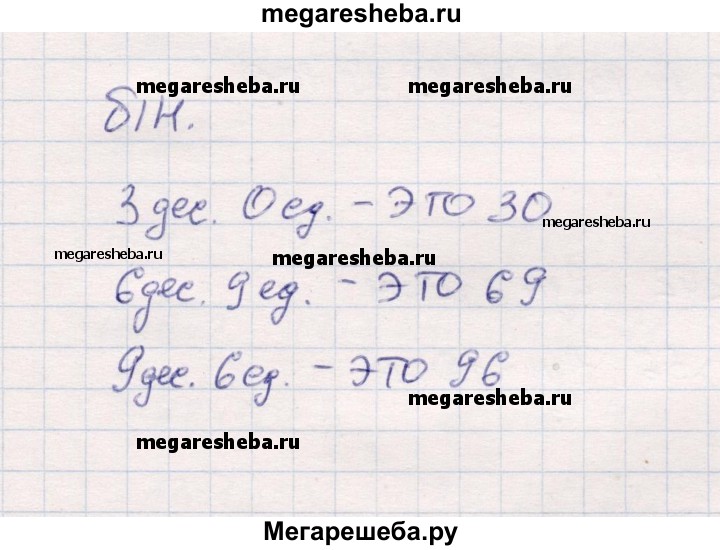 megaresheba.ru
megaresheba.ru megaresheba.ru
61Н.
3 дес. 0 ед. – это 30
megaresheba.ru
megaresheba.ru megaresheba.ru
6 дес. 9 ед. – это 69
9 дес. 6 ед. – это 96
megaresheba.ru
megaresheba.ru
Мегарешеба.ру